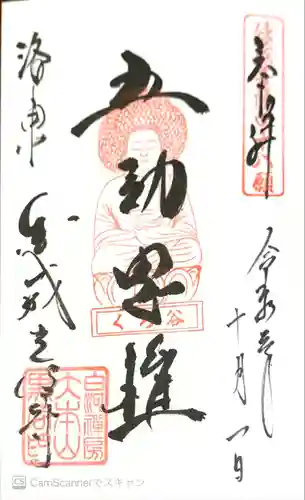 奉拝
令和元年
十月一日
五劫思惟
くろ谷
洛東
金戒光明寺
白河禅房
大本山
CS CamScannerでスキャン